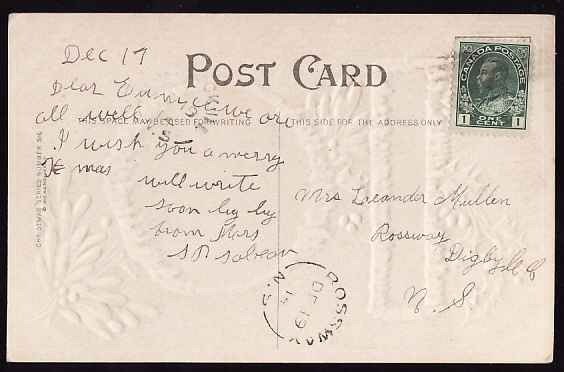 Dec 17
POST CARD
CANADA POSTAGE
1 ONE CENT 1
Dear Eunice we are
all well
THIS SPACE MAY BE USED FOR WRITING
THIS SIDE FOR THE ADDRESS ONLY
I wish you a merry
Xmas
will write
soon by by
from Mrs
S N Sabean
Mrs Leander Mullen
Rossway
Digby Co
N S
ROSSWAY
DE 19
15
N.S
CHRISTMAS SERIES NUMBER